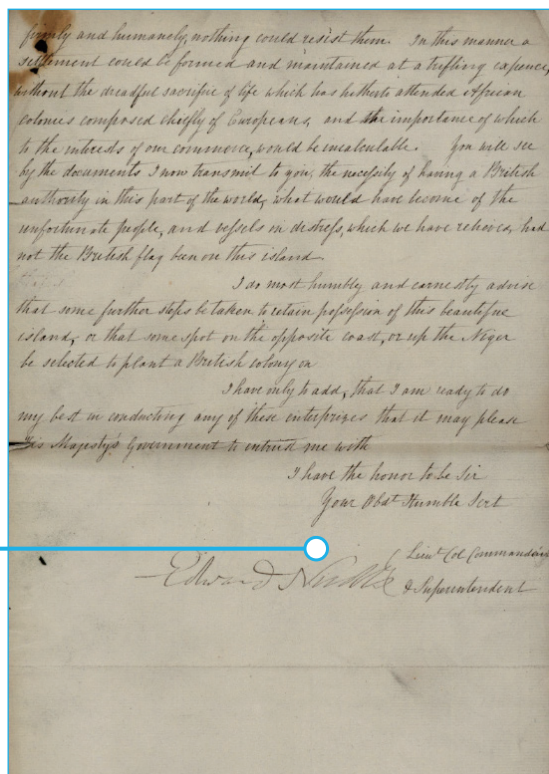 firmly and humanely, nothing could resist them. In this manner a
settlement could be formed and maintained at a trifling expence,
without the dreadful sacrifice of life which has hitherto attended African
colonies composed chiefly of Europeans, and the importance of which
to the interests of our commerce, would be incalculable. You will see
by the documents I now transmit to you, the necessity of having a British
authority in this part of the world, what would have become of the
unfortunate people, and vessels in distress, which we have relieved, had
not the British flag been on this island.
I do most humbly and earnestly advise
that some further steps be taken to retain possession of this beautiful
island, or that some spot on the opposite coast, or up the Niger
be selected to plant a British colony on
I have only to add, that I am ready to do
my best in conducting any of these enterprizes that it may please
His Majesty's Government to entrust me with
I have the honor to be Sir
Your Obdt Humble Sert
Lieut Col Commanding
Edward
& Superintendent